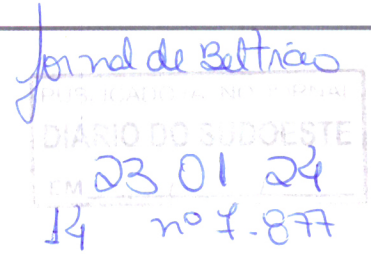 Jornal de Beltrão
PUBLICADO NO JORNAL
DIÁRIO DO SUDOESTE
EM 23 01 24
14 nº 7.877